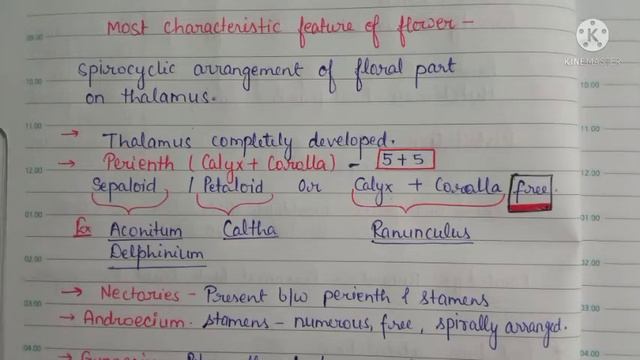 Most characteristic feature of flower -
KINEMASTER
spirocyclic arrangement of floral part
on thalamus.
→ Thalamus completely developed.
→ Perienth ( Calyx + Corolla ) - 5 + 5
Sepaloid / Petaloid Or Calyx + Corolla free.
Ex Aconitum Caltha Ranunculus
Delphinium
→ Nectaries - Present b/w perienth & stamens
→ Androecium. stamens - numerous, free, spirally arranged.
09.00
10.00
11.00
12.00
01.00
02.00
03.00
04.00
10.00
11.00
12.00
01.00
02.00
03.00
04.00